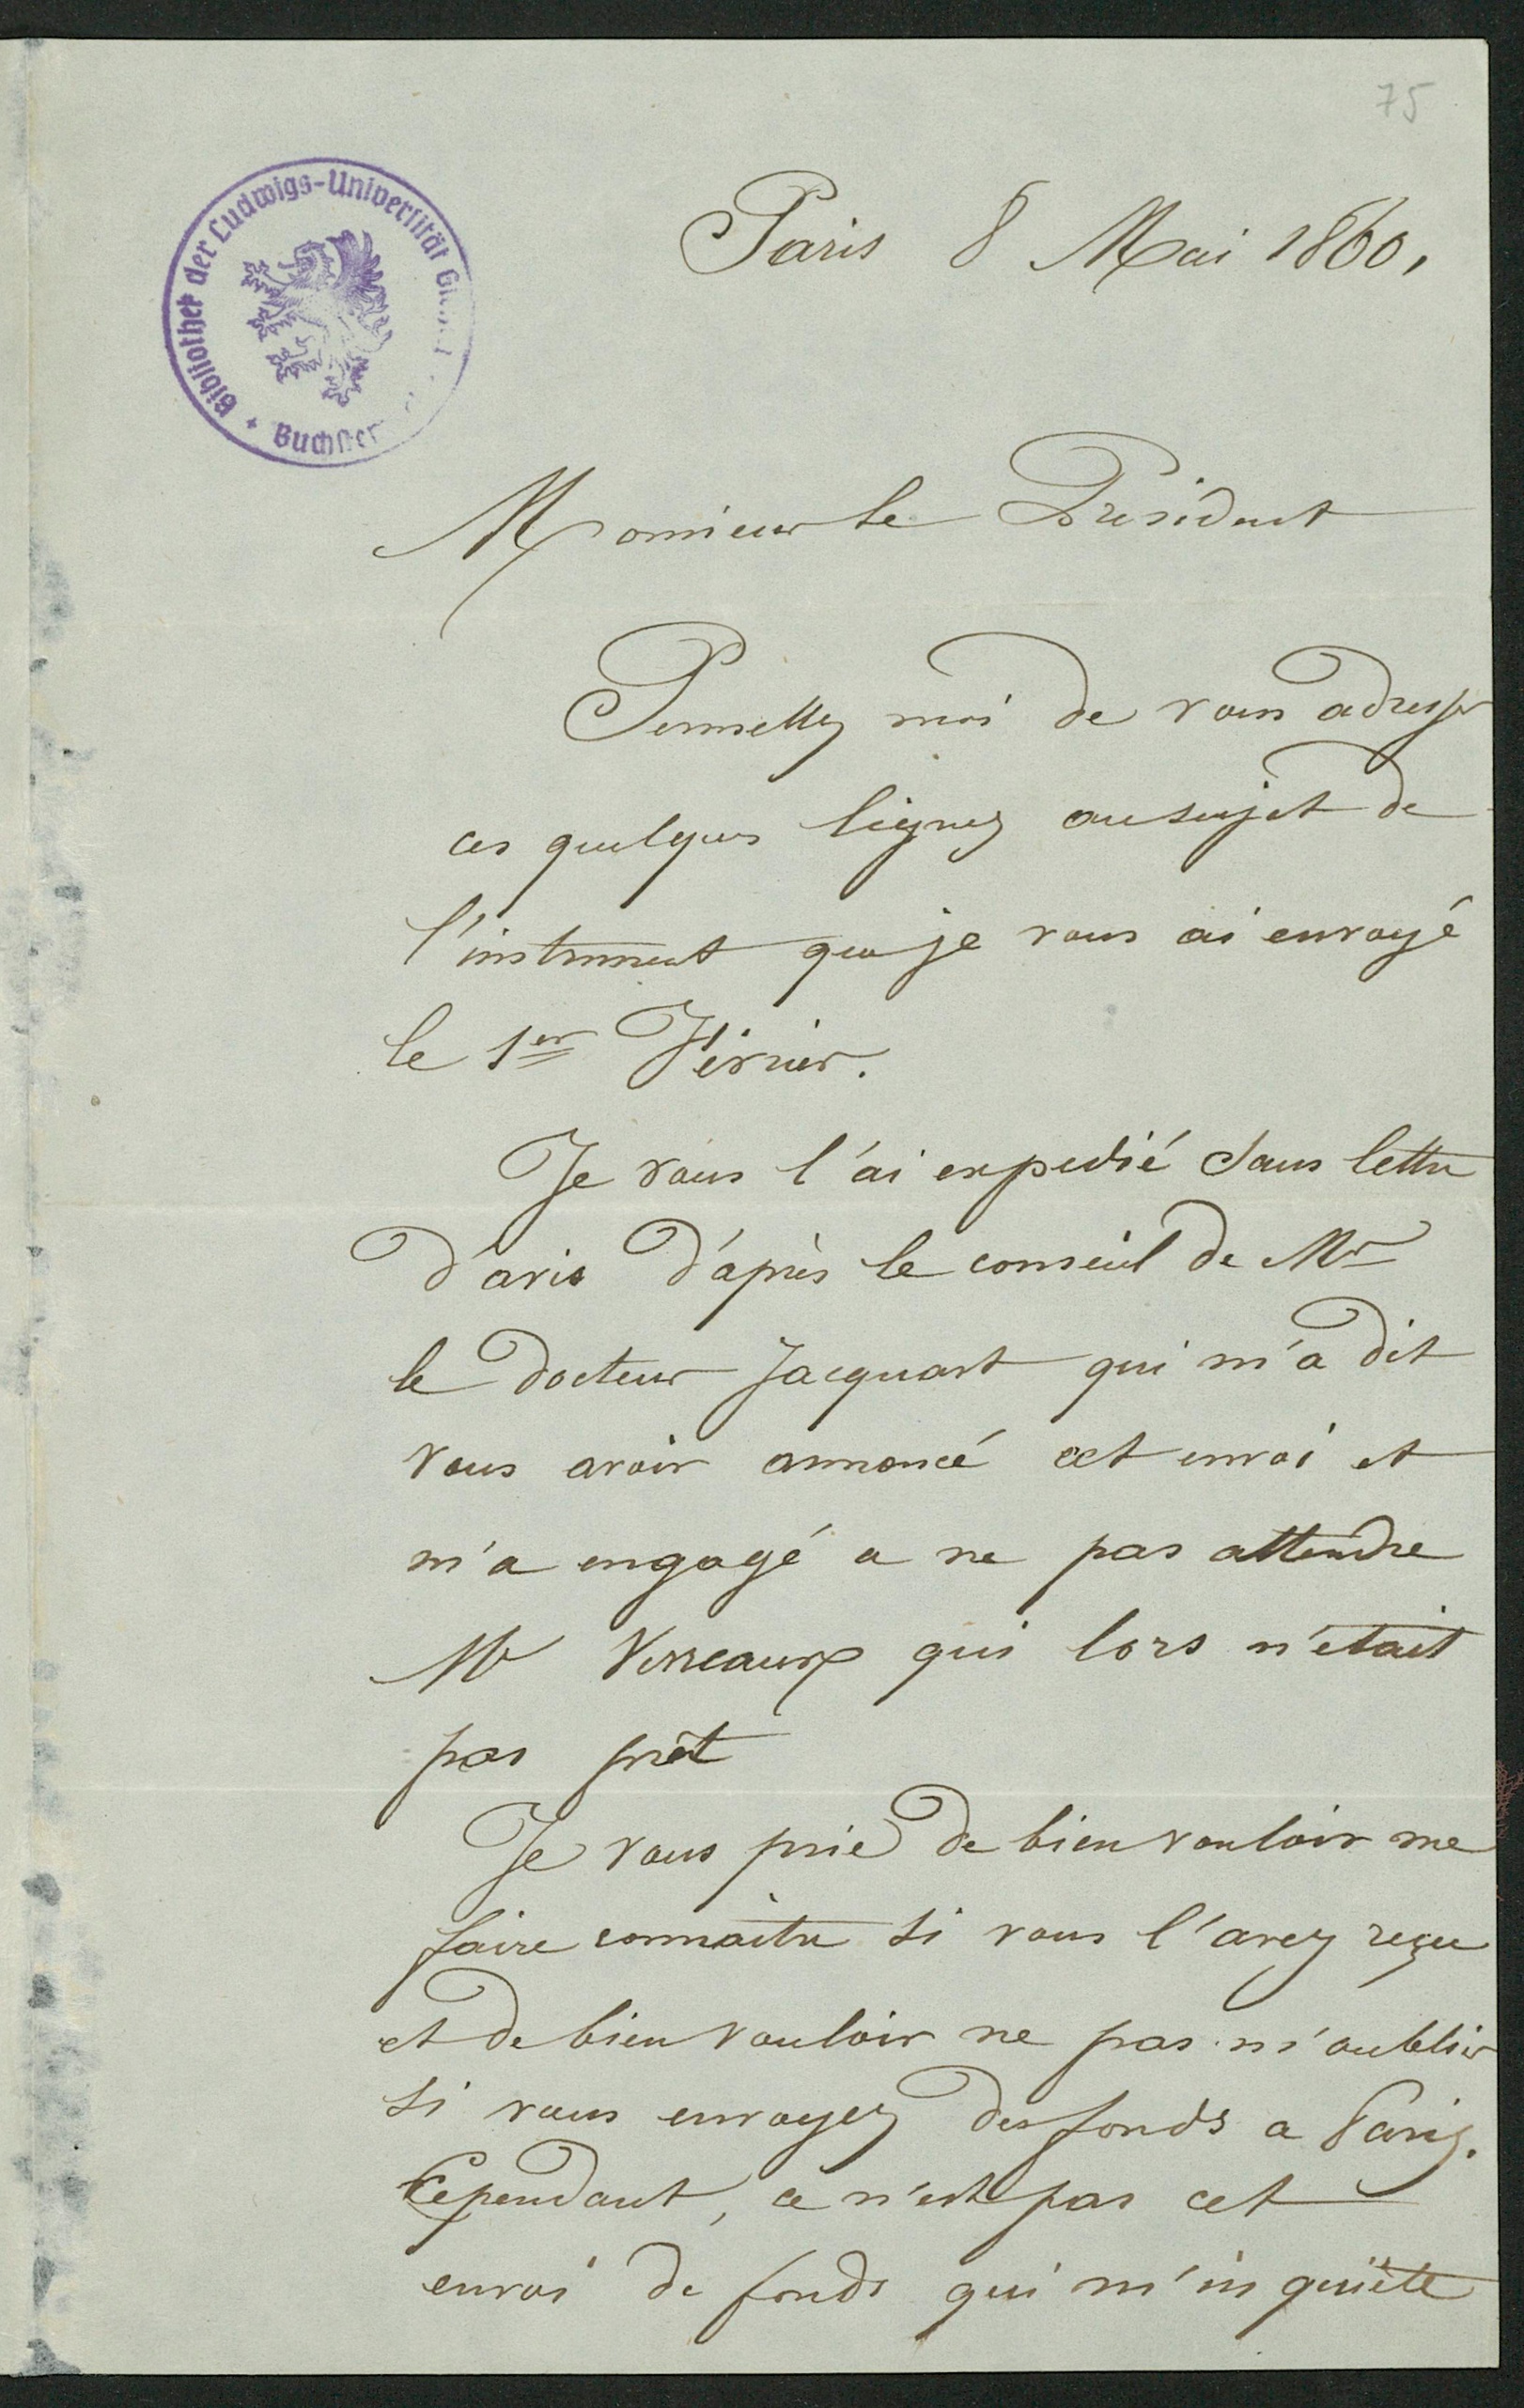 75
Bibliothek der Ludwigs-Universität
Paris 8 Mai 1860,
Monsieur le President
Permettez moi de vous adresser
ces quelques lignes au sujet de
l'instrument que je vous ai envoyé
le 1er Février.
Je vous l'ai expedié sans lettre
d'avis d'après le conseil de Mr
le docteur Jacquart qui m'a dit
vous avoir annoncé cet envoi et
m'a engagé a ne pas attendre
Mr Verreaux qui lors n'etait
pas prêt
Je vous prie de bien vouloir me
faire connaitre si vous l'avez reçu
et de bien vouloir ne pas m'oublier
si vous envoyez des fonds a Paris.
Cependant, ce n'est pas cet
envoi de fonds qui m'inquiète